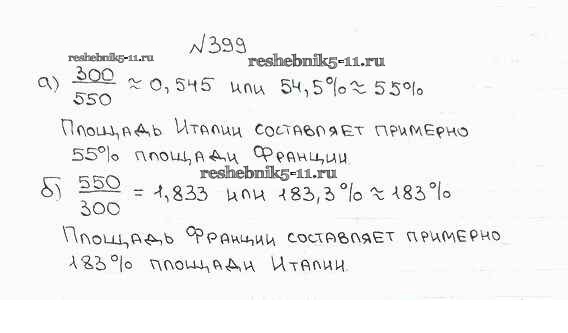 №399
reshebnik5-11.ru
reshebnik5-11.ru
а) 300/550 ≈ 0,545 или 54,5% ≈ 55%
Площадь Италии составляет примерно
55% площади Франции
reshebnik5-11.ru
б) 550/300 = 1,833 или 183,3% ≈ 183%
Площадь Франции составляет примерно
183% площади Италии